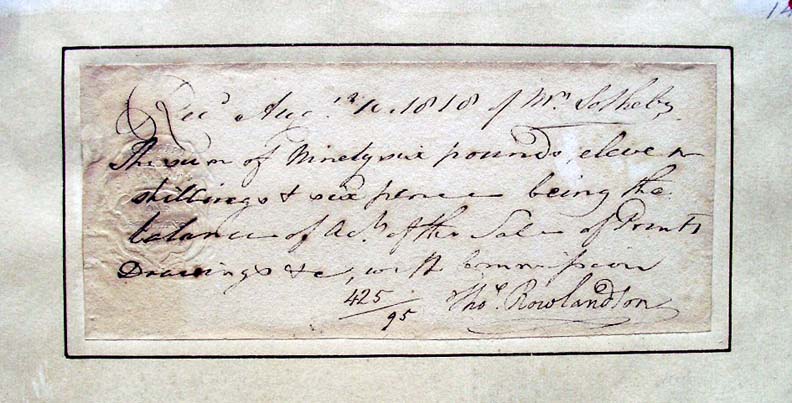 Recd Augst 10. 1818 of Mr. Sotheby
The sum of Ninety six pounds, eleven
shillings & six pence being the
balance of Act. of the Sale of Prints
Drawings &c, with Commission
425/95 Thos. Rowlandson